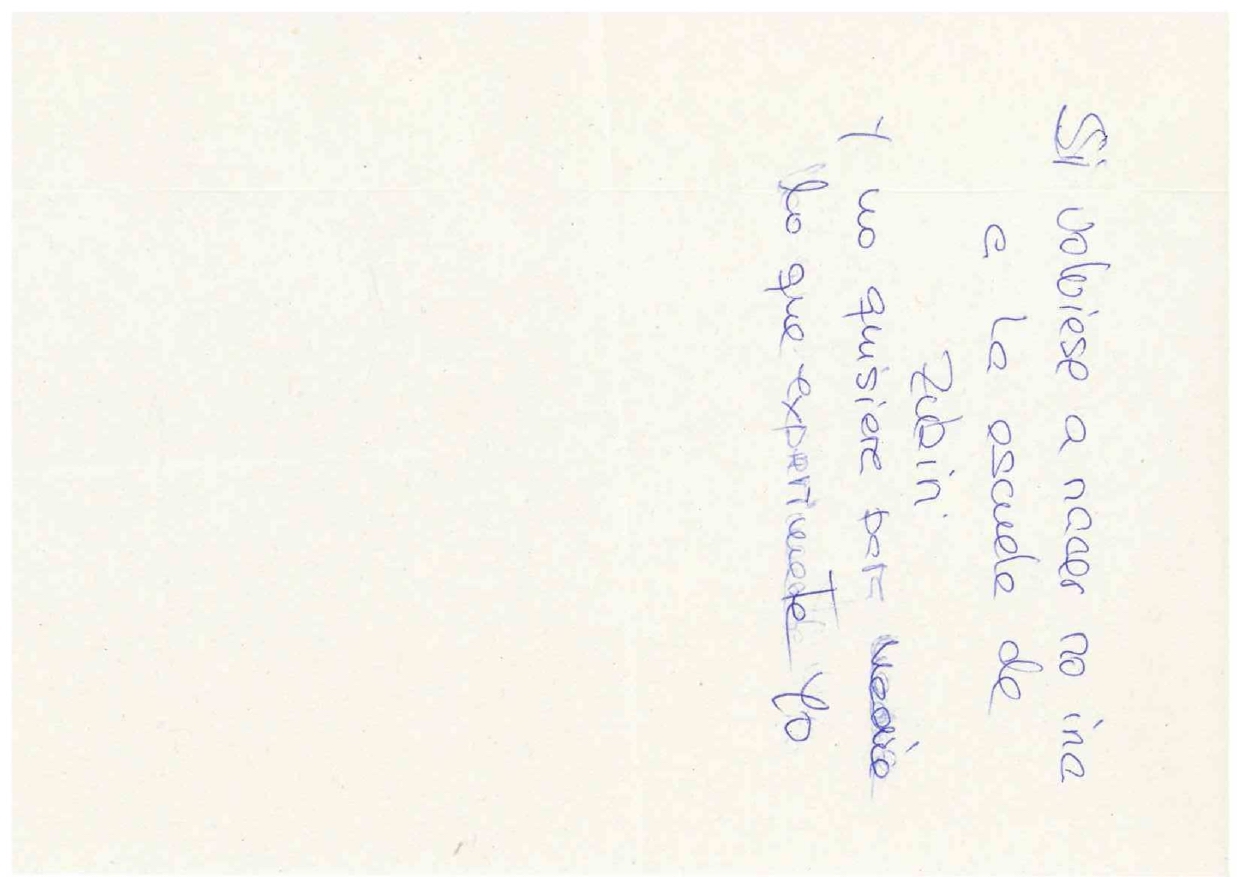 Si volviese a nacer no iria
a la escuela de
Zubiri
Y no quisiera para nadie
lo que experimente Yo